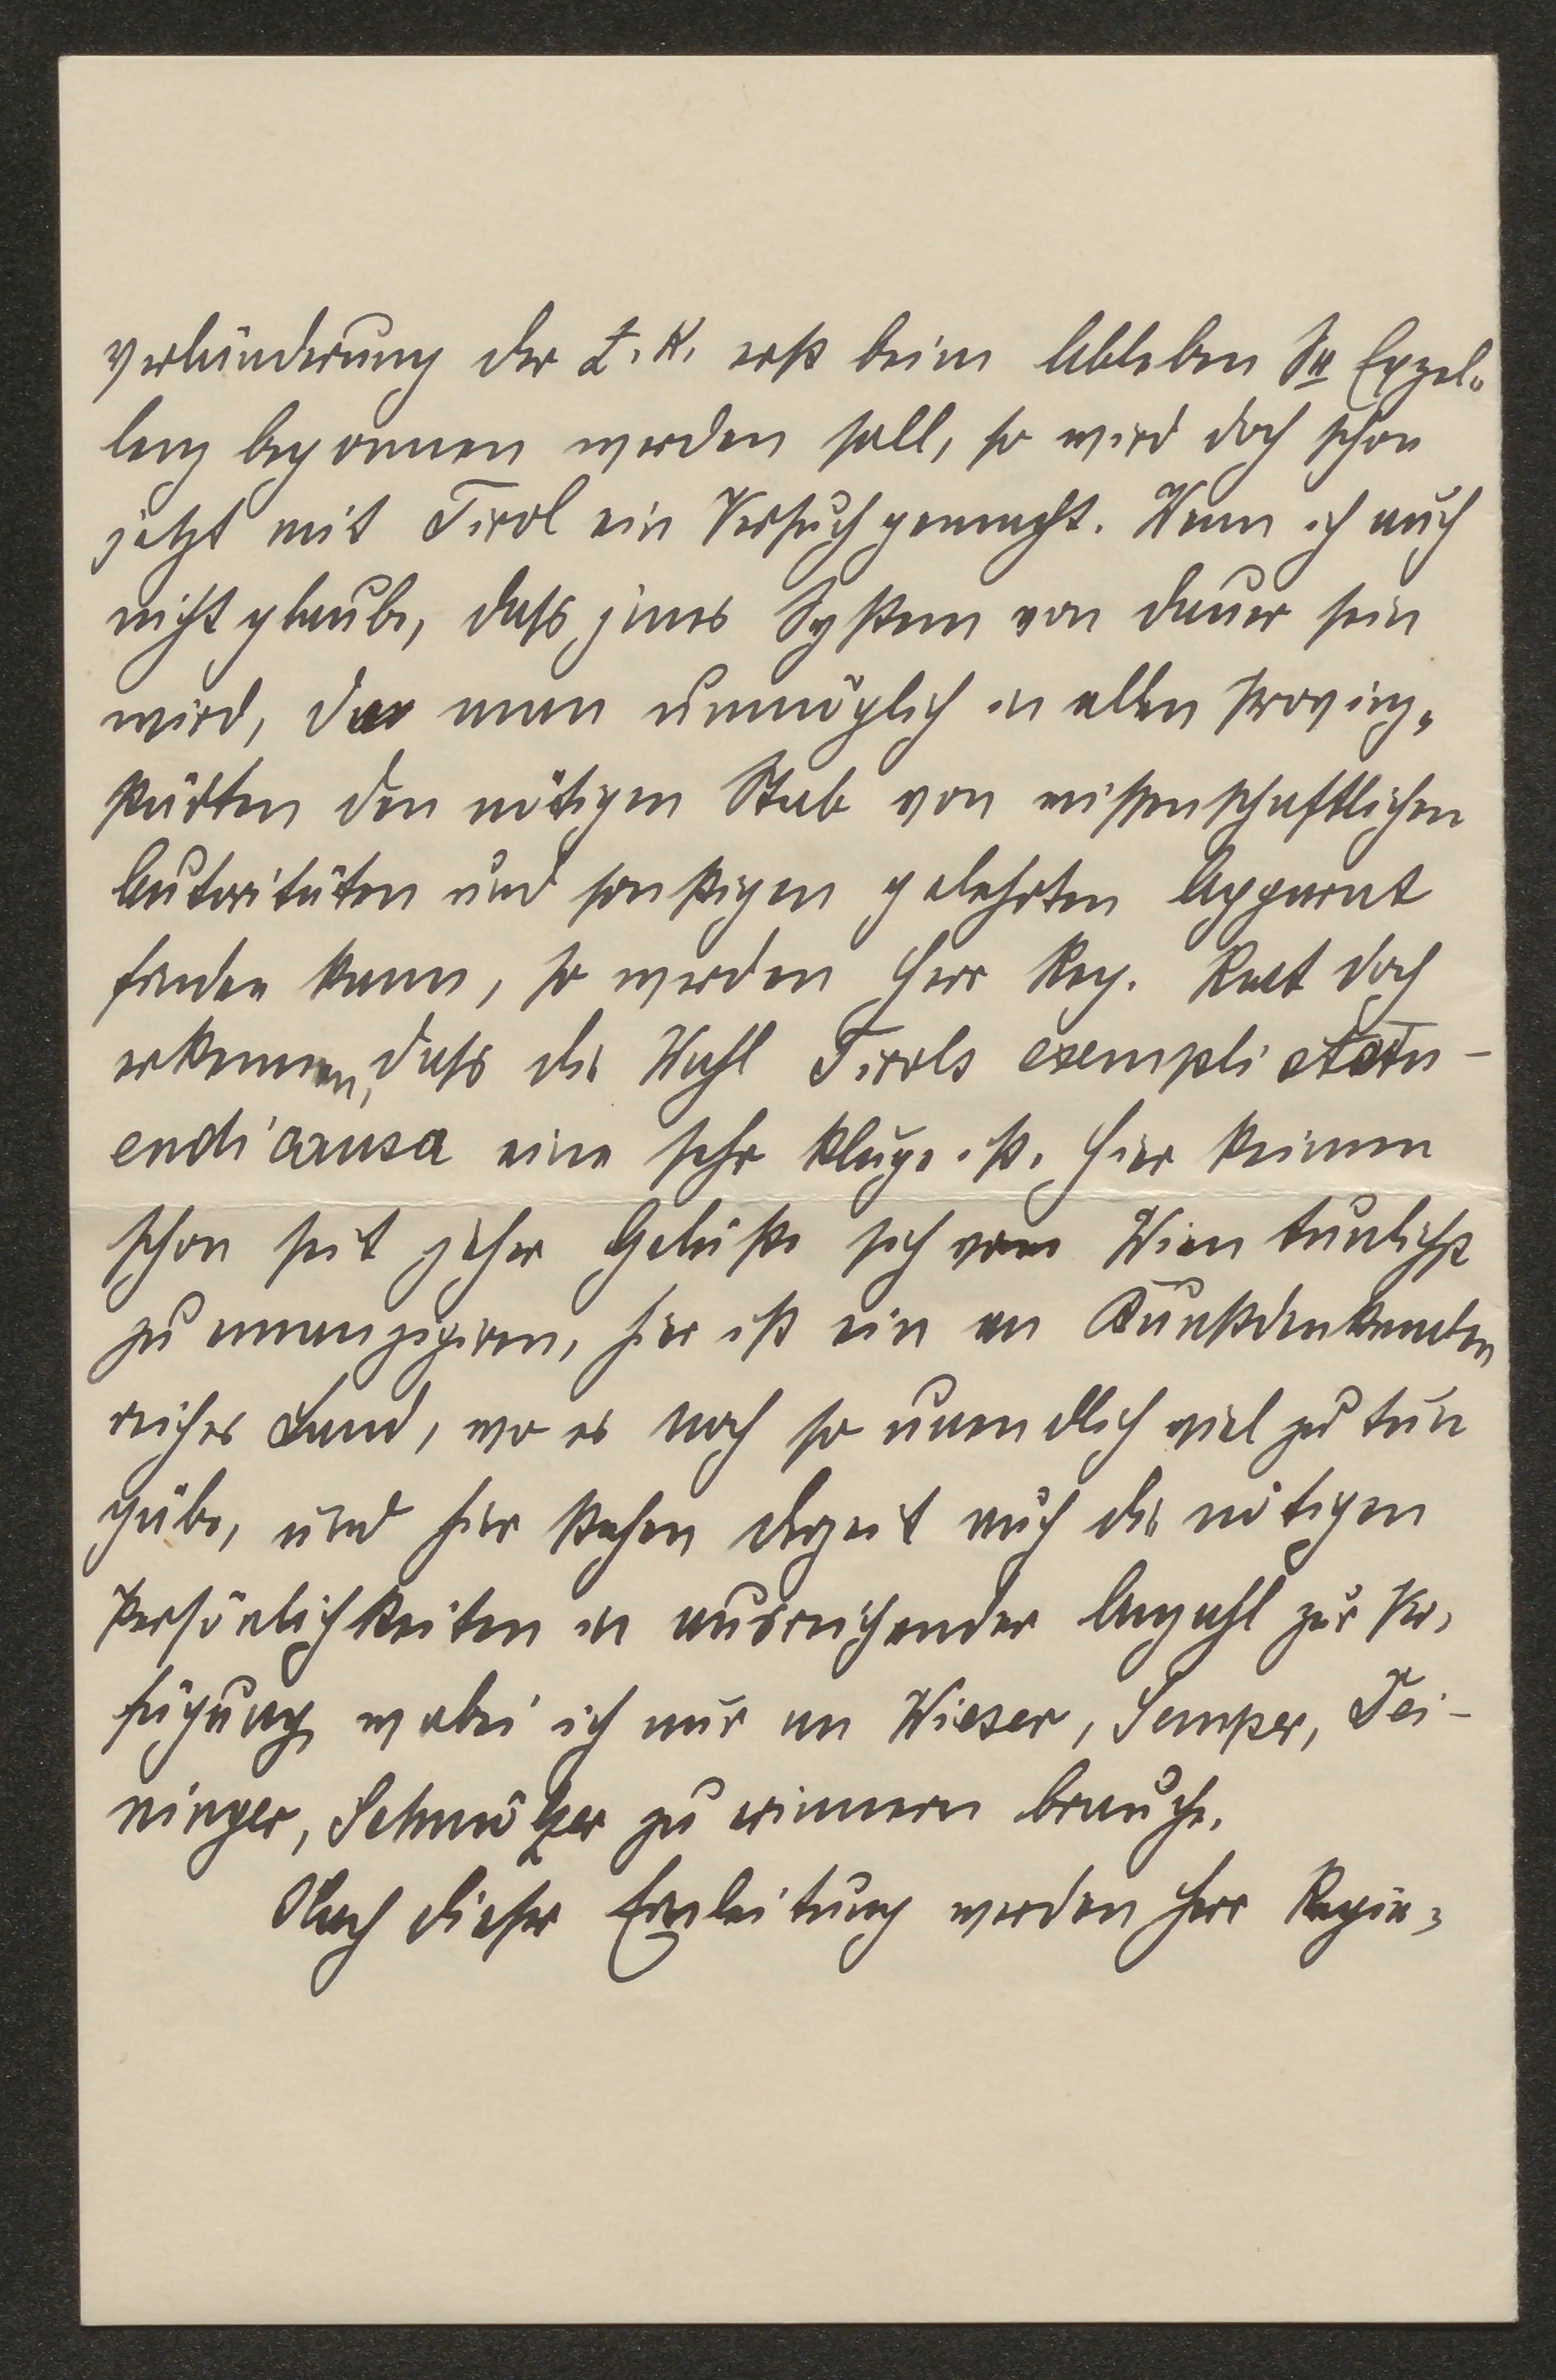 verländerung der Z. K. erst beim Ableben Sr Exzel-
lenz begonnen werden soll, so wird doch schon
jetzt mit Tirol ein Versuch gemacht. Wenn ich auch
nicht glaube, dass jenes System von Dauer sein
wird, da man unmöglich in allen Provinz-
städten den nötigen Stab von wissenschaftlichen
Autoritäten und sonstigen gelehrten Apparat
finden kann, so werden Herr Reg. Rat doch
erkennen, dass die Wahl Tirols exempli statu-
endi causa eine sehr kluge ist. Hier keimen
schon seit jeher Gelüste sich von Wien tunlichst
zu emanzipiren, hier ist ein an Kunstdenkmalen
reiches Land, wo es noch so unendlich viel zu tun
gäbe, und hier stehen derzeit auch die nötigen
Persönlichkeiten in ausreichender Anzahl zur Ver-
fügung, wobei ich nur an Wieser, Semper, Dei-
ninger, Schmölzer zu erinnern brauche.
Nach dieser Einleitung werden Herr Regie-